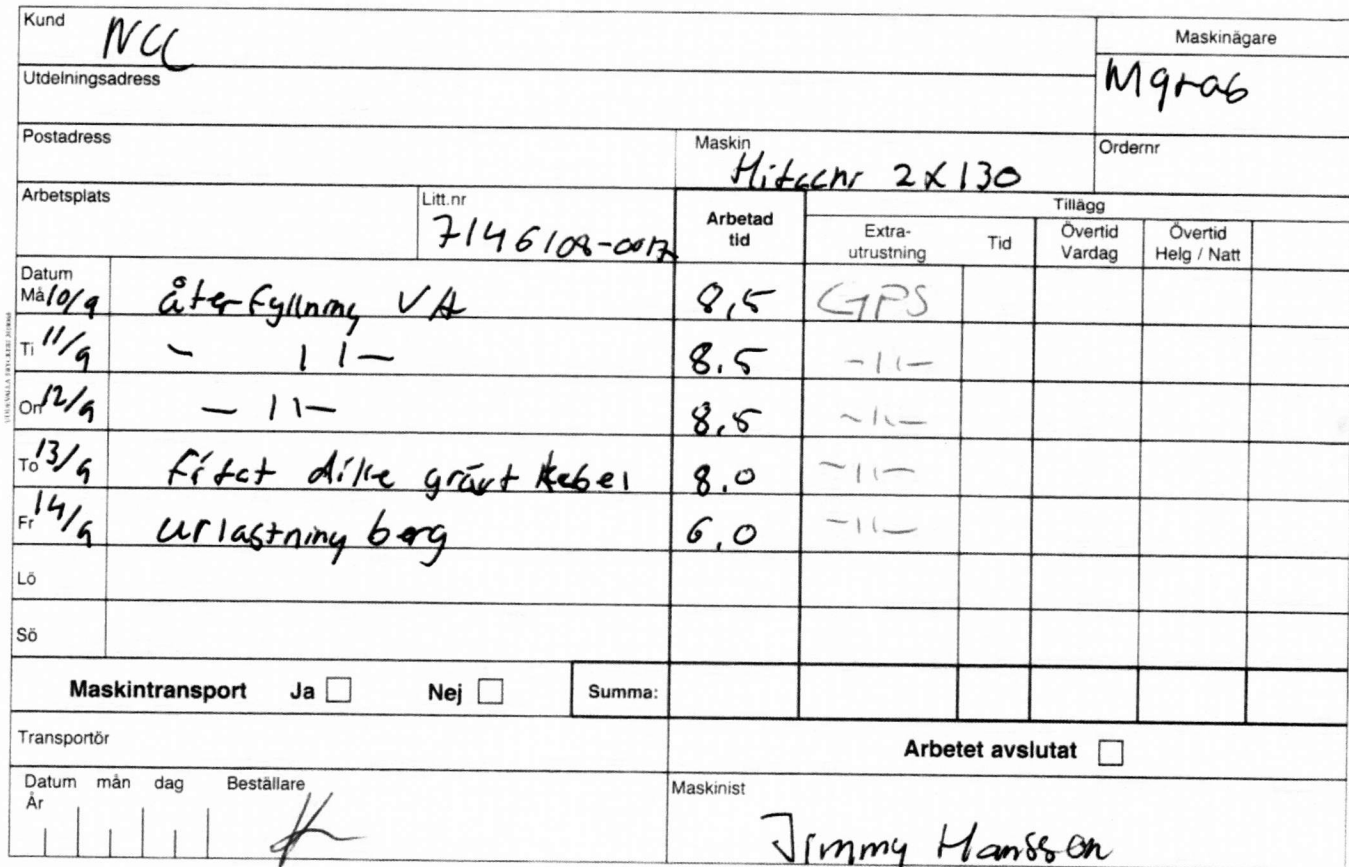 Kund
NCC
Maskinägare
Mgrab
Utdelningsadress
Postadress
Maskin
Hitachi ZX130
Ordernr
Arbetsplats
Litt.nr
7146108-0017
Arbetad tid
Tillägg
Extra-utrustning
Tid
Övertid Vardag
Övertid Helg / Natt
Datum
Må 10/9 återfyllning VA 8,5 GPS
Ti 11/9 - 11 - 8.5 -11-
On 12/9 - 11 - 8,5 -11-
To 13/9 dike grävt kabel 8.0 -11-
Fr 14/9 urlastning berg 6,0 -11-
Lö
Sö
Maskintransport Ja Nej Summa:
Transportör
Arbetet avslutat
Datum mån dag Beställare
År
Maskinist
Jimmy Hansson